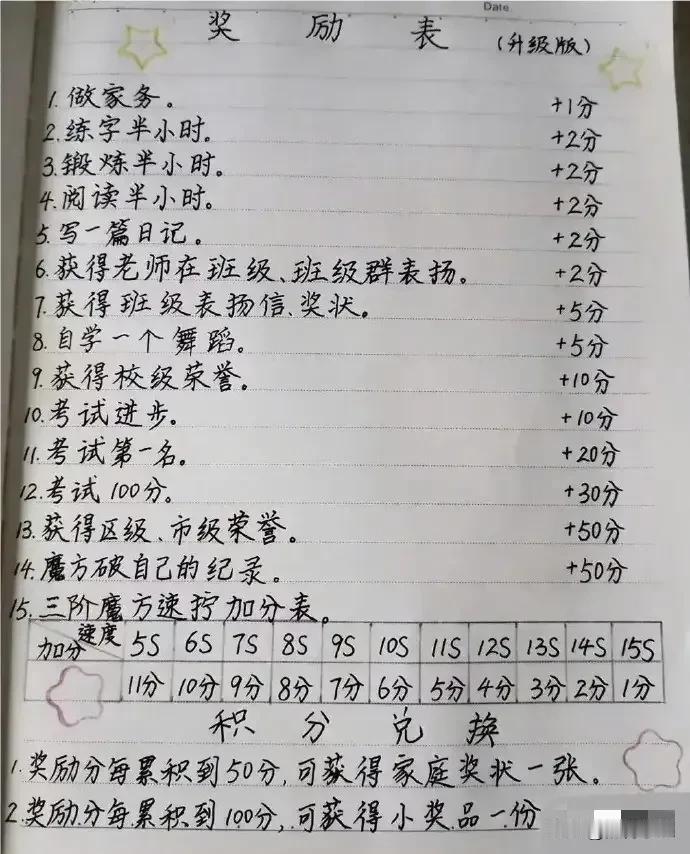 Date.
奖励表 (升级版)
1. 做家务。 +1分
2. 练字半小时。 +2分
3. 锻炼半小时。 +2分
4. 阅读半小时。 +2分
5. 写一篇日记。 +2分
6. 获得老师在班级、班级群表扬。 +2分
7. 获得班级表扬信、奖状。 +5分
8. 自学一个舞蹈。 +5分
9. 获得校级荣誉。 +10分
10. 考试进步。 +10分
11. 考试第一名。 +20分
12. 考试100分。 +30分
13. 获得区级、市级荣誉。 +50分
14. 魔方破自己的纪录。 +50分
15. 三阶魔方速拧加分表。
加分 速度 5S 6S 7S 8S 9S 10S 11S 12S 13S 14S 15S
11分 10分 9分 8分 7分 6分 5分 4分 3分 2分 1分
积分兑换
1. 奖励分每累积到50分,可获得家庭奖状一张。
2. 奖励分每累积到100分,可获得小奖品一份